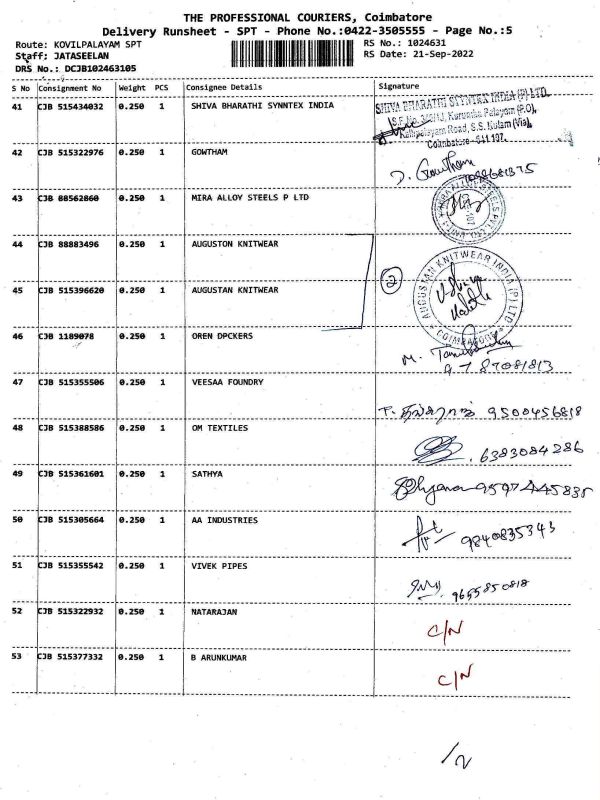 THE PROFESSIONAL COURIERS, Coimbatore
Delivery Runsheet - SPT - Phone No.:0422-3505555 - Page No.:5
Route: KOVILPALAYAM SPT RS No.: 1024631
Staff; JATASEELAN RS Date: 21-Sep-2022
DRS No.: DCJB102463105
S No Consignment No Weight PCS Consignee Details Signature
41 CJB 515434032 0.250 1 SHIVA BHARATHI SYNNTEX INDIA
SHIVA BHARATHI SYNNTEX INDIA (P) LTD.
Kurumba Palayam (P.O),
Road, S.S. Kulam (Via),
Coimbatore - 641 107.
42 CJB 515322976 0.250 1 GOWTHAM
D. Gowtham
43 CJB 88562860 0.250 1 MIRA ALLOY STEELS P LTD
44 CJB 88883496 0.250 1 AUGUSTON KNITWEAR
45 CJB 515396620 0.250 1 AUGUSTAN KNITWEAR
2
AUGUSTAN KNITWEAR INDIA (P) LTD
COIMBATORE
46 CJB 1189078 0.250 1 OREN DPCKERS
M.
9787081813
47 CJB 515355506 0.250 1 VEESAA FOUNDRY
9500456818
48 CJB 515388586 0.250 1 OM TEXTILES
6383084286
49 CJB 515361601 0.250 1 SATHYA
9597445835
50 CJB 515305664 0.250 1 AA INDUSTRIES
9840835343
51 CJB 515355542 0.250 1 VIVEK PIPES
9655850818
52 CJB 515322932 0.250 1 NATARAJAN
C/N
53 CJB 515377332 0.250 1 B ARUNKUMAR
C/N